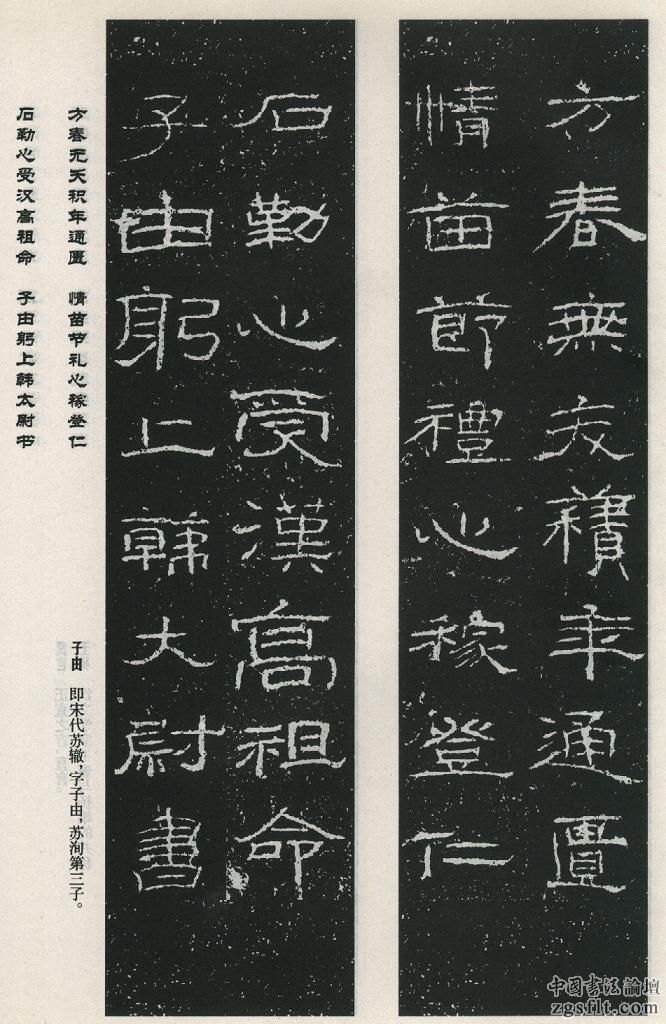 方春無友積年通匱
情苗節禮心稼登仁
石勒心受漢高祖命
子由躬上韩大尉書
方春无友积年通匮 情苗节礼心稼登仁
石勒心受汉高祖命 子由躬上韩太尉书
子由 即宋代苏辙,字子由,苏洵第三子。
中國書法論壇
zgsflt.com